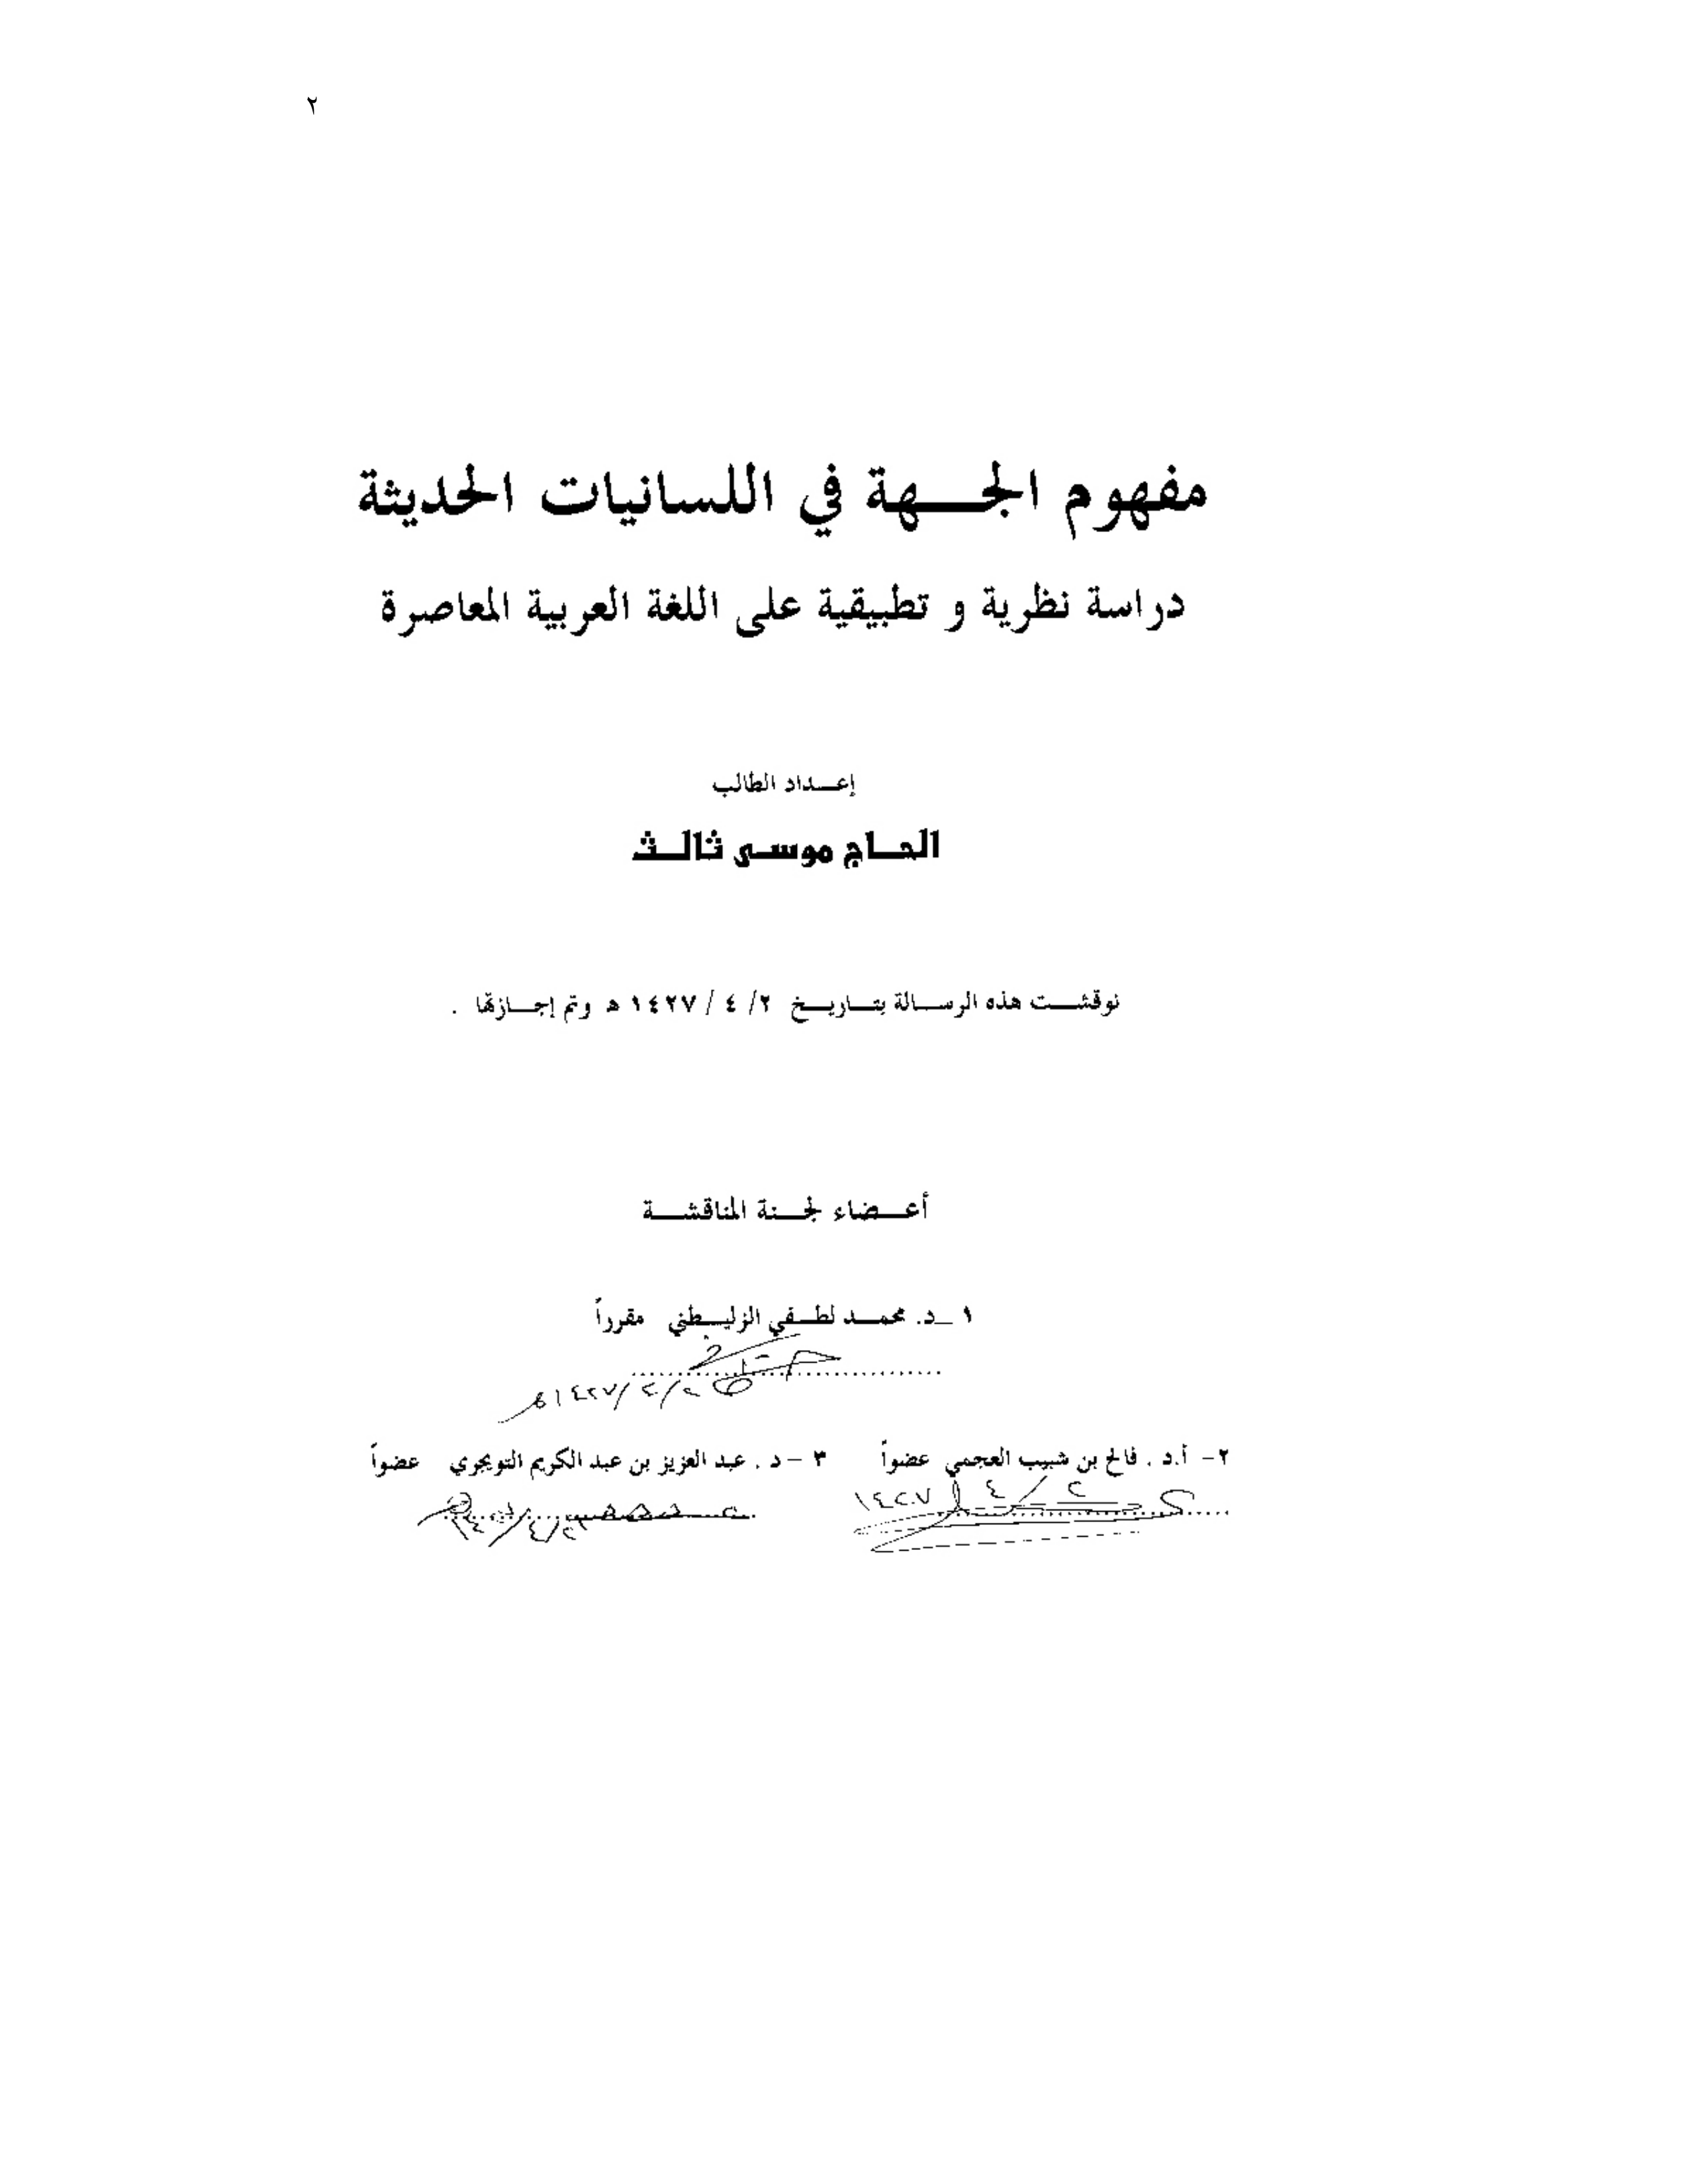 ٢
مفهوم الجـــهة في اللسانيات الحديثة
دراسة نظرية و تطبيقية على اللغة العربية المعاصرة
إعــداد الطالب
الحــاج موســى ثالــث
نوقشــت هذه الرســالة بتــاريــخ ٢/ ٤ / ١٤٢٧ هـ وتم إجــازتها .
أعــضاء لجــنة المناقشــة
١ _د. محمــد لطــفي الزليــطني مقرراً
١٤٢٧/٤/٢هـ
٢- أ.د . فالح بن شبيب العجمي عضواً ٣ - د . عبد العزيز بن عبد الكريم التويجري عضواً
٢ / ٤ / ١٤٢٧